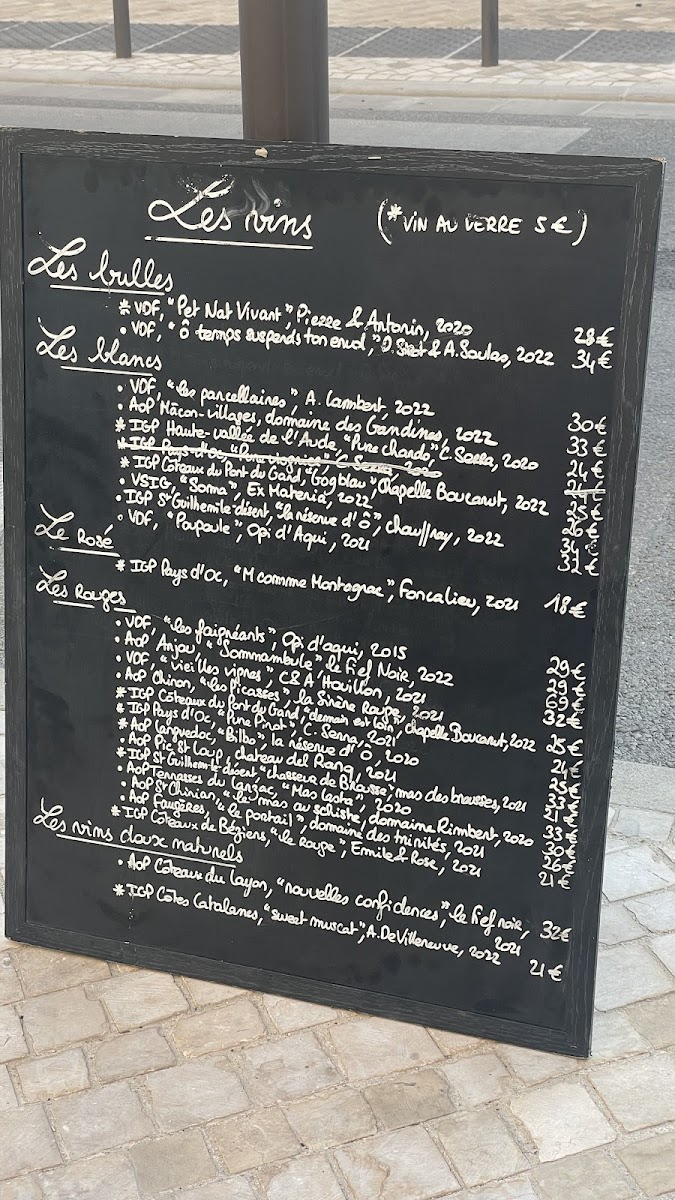 Les vins (*VIN AU VERRE 5€)
Les bulles
* VDF, "Pet Nat Vivant", Pierre & Antonin, 2020 28€
• VDF, "Ô temps suspends ton envol", & A. Soulas, 2022 34€
Les blancs
• VDF, "les parcellaires", A. Lambert, 2022 30€
• AoP Mâcon-villages, domaine des Gandines, 2022 33€
* IGP Haute-vallée de l'Aude, "Pure chardo", C. Serra, 2020 24€
* IGP Pays d'Oc, "Pure viognier", C. Serra, 2020 24€
* IGP Côteaux du Pont du Gard, "Gogblau", Chapelle Boucarut, 2022 25€
• VSIG, "Soma", Ex Materia, 2022 26€
• IGP St Guilhem le désert, "la réserve d'Ô", Chauffray, 2022 34€
• VDF, "Poupoule", Opi d'Aqui, 2021 32€
Le Rosé
* IGP Pays d'Oc, "M comme Montagnac", Foncalieu, 2021 18€
Les Rouges
• VDF, "les faignéants", Opi d'aqui, 2015 29€
• AoP, Anjou, "Sommambule" le Fief Noir, 2022 29€
• VDF, "Vieilles vignes", C & A Houillon, 2021 69€
• AoP Chinon, "les Picasses", la Sirène Rouge, 2021 32€
* IGP Côteaux du Pont du Gard, demain est loin, chapelle Boucarut, 2022 25€
* IGP Pays d'Oc, "Pure Pinot", C. Serra, 2021 24€
* AoP Languedoc, "Bilbo", la réserve d'Ô, 2020 25€
• AoP Pic St Loup, chateau del Rang, 2021 33€
* IGP St Guilhem le désert "chasseur de Brousse", mas des brousses, 2021 21€
• AoP Terrasses du Larzac, "Mas Lasta", 2020 33€
• AoP St Chinian, "le mas au schiste", domaine Rimbert, 2020 30€
• AoP Faugères, "le portail", domaine des trinités, 2021 26€
* IGP Côteaux de Béziers, "le Rouge", Emile & Rose, 2021 21€
Les vins doux naturels
• AoP Côteaux du Layon, "nouvelles confidences", le fief noir, 2021 32€
* IGP Côtes Catalanes, "sweet muscat", A. De Villeneuve, 2022 21€